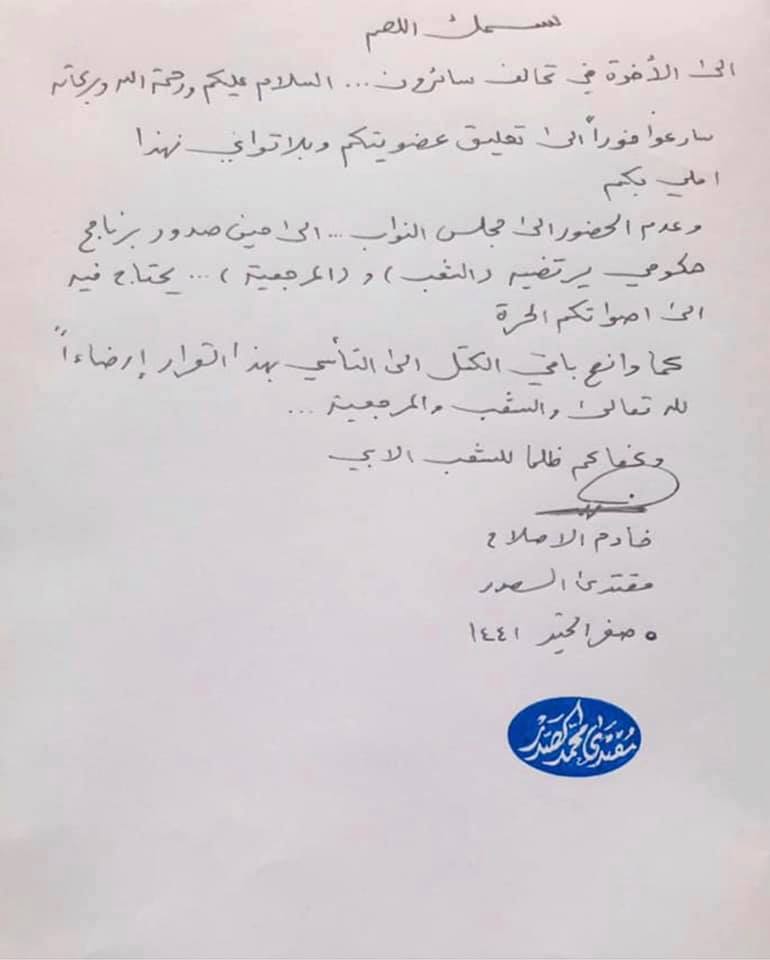 بسمك اللهم
الى الأخوة في تحالف سائرون... السلام عليكم ورحمة الله وبركاته
سارعوا فوراً الى تعليق عضويتكم وبلا تواني فهذا
املي بكم
وعدم الحضور الى مجلس النواب... الى حين صدور برنامج
حكومي يرتضيه (الشعب) و(المرجعية)... يحتاج فيه
الى اصواتكم الحرة
كما وانصح باقي الكتل الى التأسي بهذا القرار إرضاءاً
لله تعالى والشعب والمرجعية...
وكفاكم ظلما للشعب الابي
خادم الاصلاح
مقتدى الصدر
٥ صفر الخير ١٤٤١
مقتدى محمد الصدر